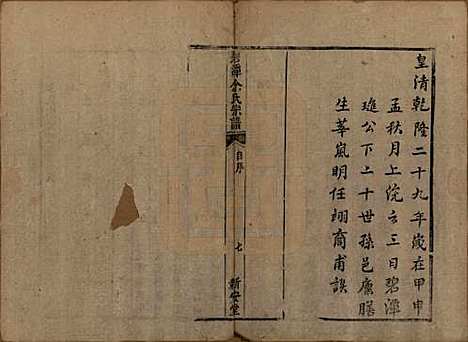 皇清乾隆二十九年歲在甲申
孟秋月上浣之三日碧潭
璡公下二十世孫邑廩膳
生華嵐明任翊裔甫謨
碧潭余氏宗譜
自序
七
新安堂